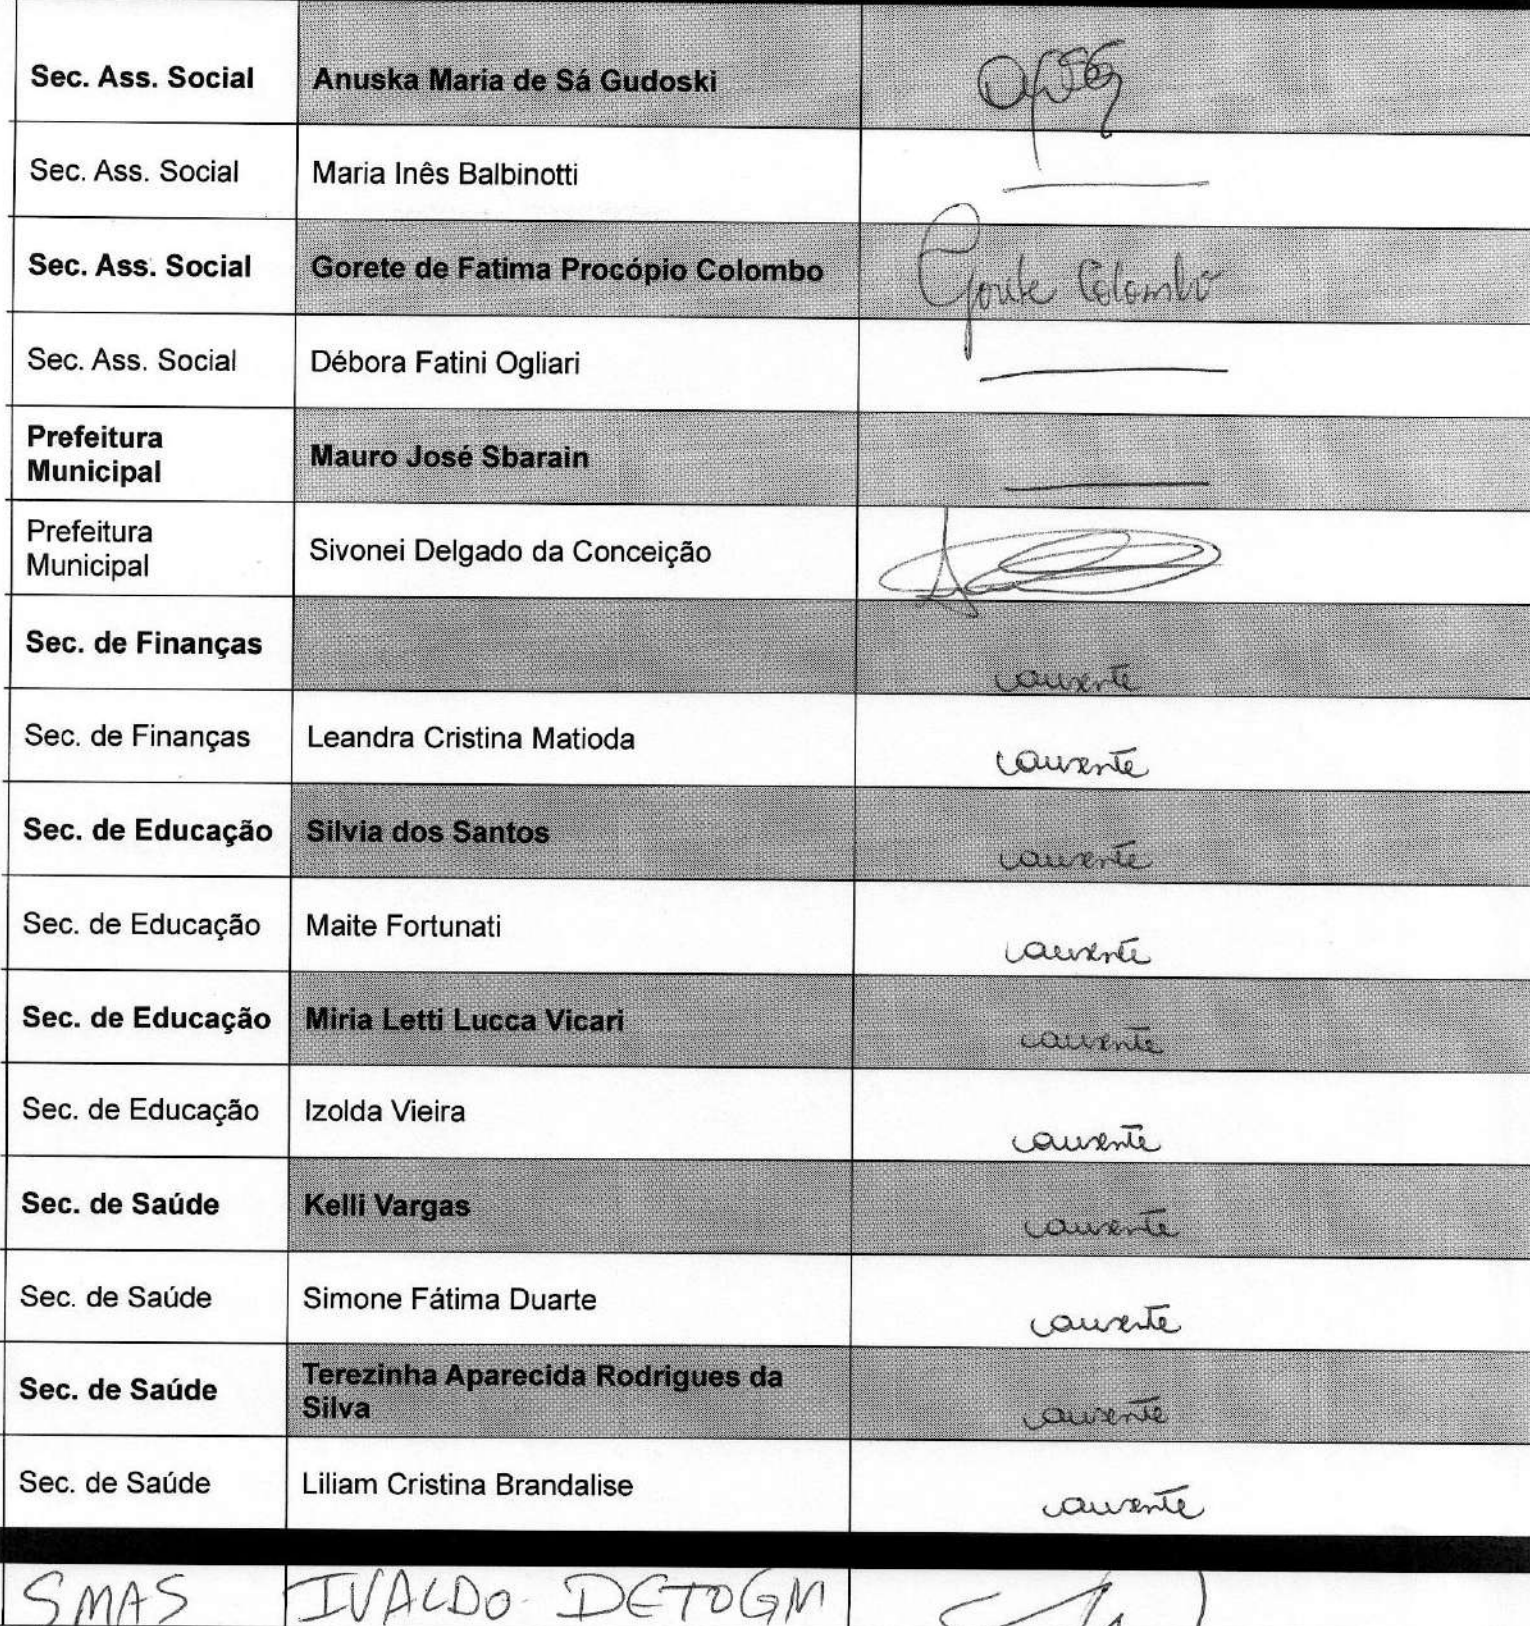 Sec. Ass. Social Anuska Maria de Sá Gudoski
Sec. Ass. Social Maria Inês Balbinotti
Sec. Ass. Social Gorete de Fatima Procópio Colombo Gorete Colombo
Sec. Ass. Social Débora Fatini Ogliari
Prefeitura
Municipal Mauro José Sbarain
Prefeitura
Municipal Sivonei Delgado da Conceição
Sec. de Finanças ausente
Sec. de Finanças Leandra Cristina Matioda ausente
Sec. de Educação Silvia dos Santos ausente
Sec. de Educação Maite Fortunati ausente
Sec. de Educação Miria Letti Lucca Vicari ausente
Sec. de Educação Izolda Vieira ausente
Sec. de Saúde Kelli Vargas ausente
Sec. de Saúde Simone Fátima Duarte ausente
Sec. de Saúde Terezinha Aparecida Rodrigues da
Silva ausente
Sec. de Saúde Liliam Cristina Brandalise ausente
SMAS IVALDO